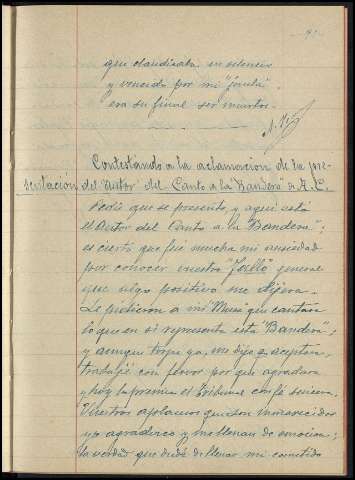 que claudicaba en silencio
y vencido por mi "jaula"
era su final ser muertos.
Contestando a la aclamacion de la pre-
sentación del "autor" del Canto a la "Bandera" de A. C.
Pedís que se presente, y aquí está
el Autor del Canto a la "Bandera";
es cierto que fué mucha mi ansiedad
por conocer vuestro "Fallo" general
que algo positivo me dijera.
Le pidieron a mi "Musa" que cantara
lo que en si representa esta "Bandera";
y aunque torpe yo, me dijo aceptara,
trabajé con fervor por que agradara
y hoy la premia el Tribunal con fé sincera.
Vuestros aplausos que son inmerecidos
yo agradezco y me llenan de emocion;
la verdad que dudé de llenar mi cometido